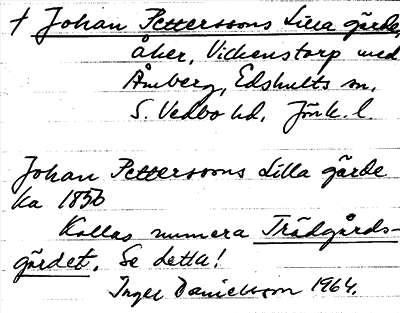 † Johan Petterssons Lilla gärde,
åker, Vickenstorp med
Åmberg, Edshults sn,
S. Vedbo hd, Jönk. l.
Johan Petterssons Lilla gärde
ka 1856
Kallas numera Trädgårds-
gärdet. Se detta!
Inger Danielsson 1964.